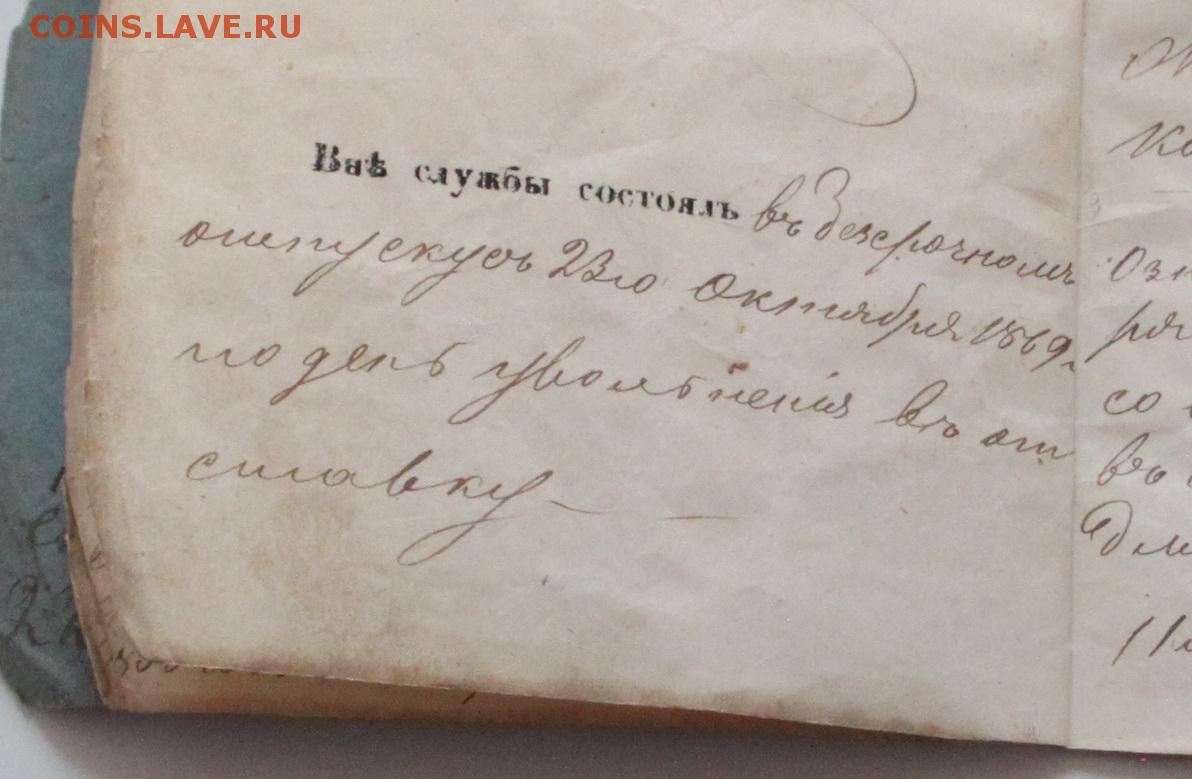 COINS.LAVE.RU
Внѣ службы состоялъ въ безсрочномъ
отпуску съ 23го Октября 1869г.
по день увольненія въ от
ставку